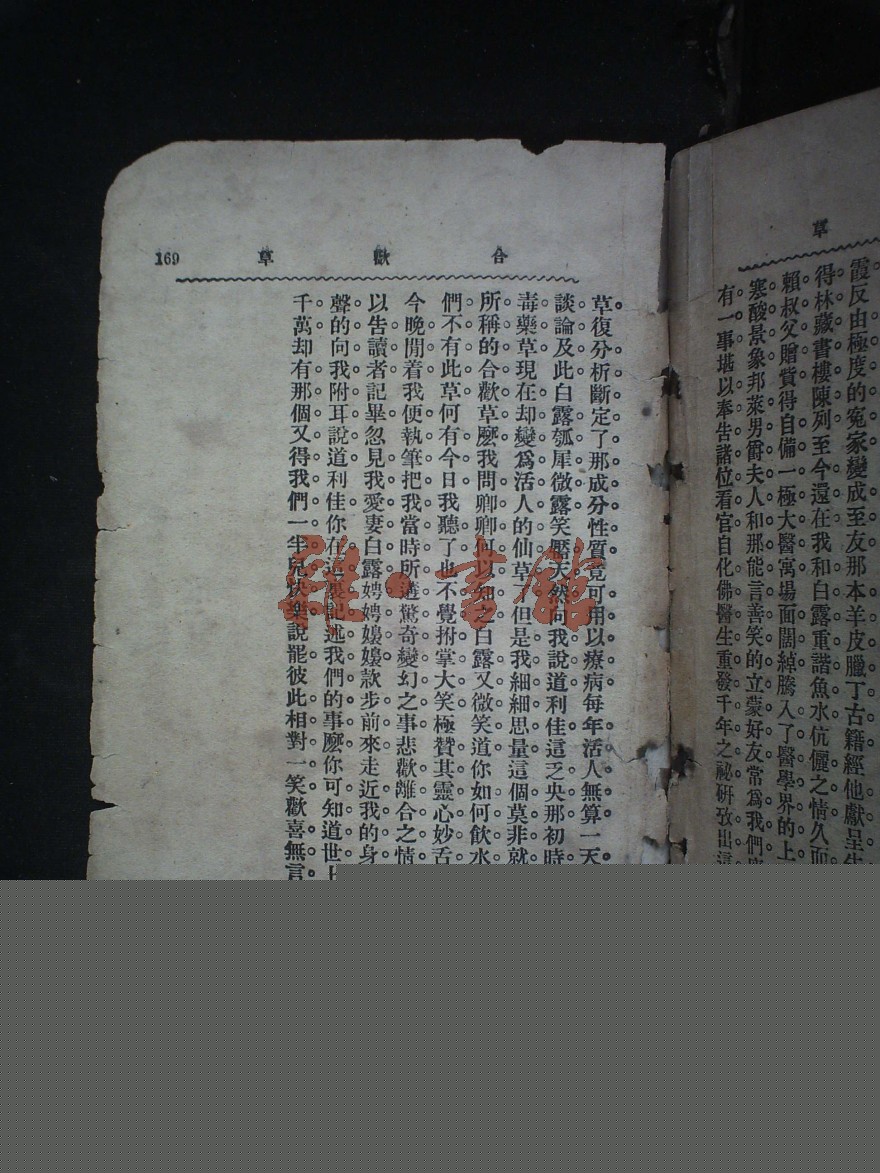 草
霞反由極度的寃家變成至友那本羊皮臘丁古籍經他獻呈
得林藏書樓陳列至今還在我和白露重諧魚水伉儷之情久而
賴叔父贈貲得自備一極大醫寓場面闊綽騰入了醫學界的上
寒酸景象邦萊男爵夫人和那能言善笑的立蒙好友常爲我們
有一事堪以奉告諸位看官自化佛醫生重發千年之祕研攷出這
合歡草
169
草。復分析斷定了那成分性質竟可用以療病每年活人無算一天
談論及此白露瓠犀微露笑靨天然向我說道利佳這乏央那初時
毒藥草現在却變爲活人的仙草了但是我細細思量這個莫非就
所稱的合歡草麽我問卿卿何以知之白露又微笑道你如何飲水
們不有此草何有今日我聽了也不覺拊掌大笑極贊其靈心妙舌
今晚閒着我便執筆把我當時所遘驚奇變幻之事悲歡離合之情
以告讀者記畢忽見我愛妻白露娉娉嬝嬝款步前來走近我的身
聲的向我附耳說道利佳你在這裏記述我們的事麽你可知道世上
千萬却有那個又得我們一半兒快樂說罷彼此相對一笑歡喜無言
雜·書館